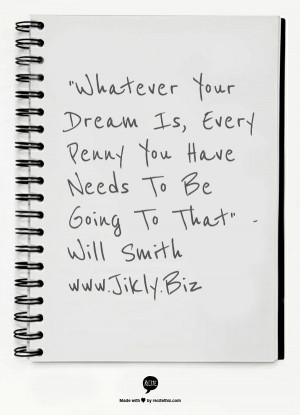 "Whatever Your
Dream Is, Every
Penny You Have
Needs To Be
Going To That" -
Will Smith
www.Jikly.Biz
Made with ♥ by recitethis.com